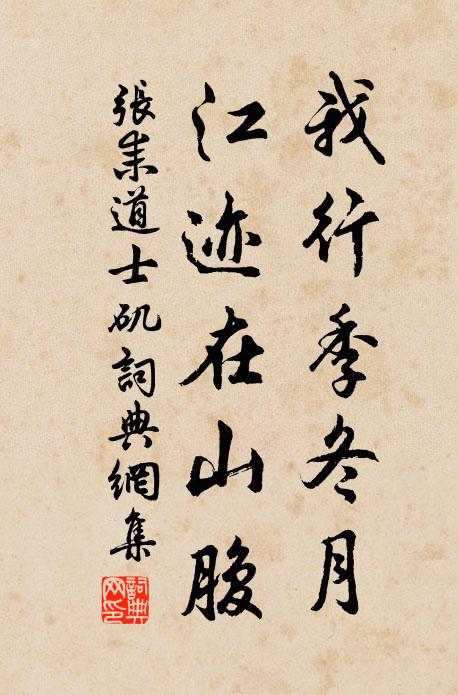 我行季冬月
江迹在山腹
張耒道士矶詞典網集
詞典網印